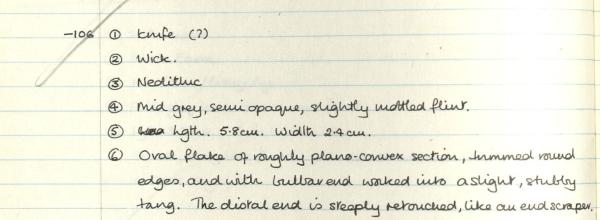 -106 ① Knife (?)
② Wick.
③ Neolithic
④ Mid grey, semi opaque, slightly mottled flint.
⑤ lgth. 5.8cm. Width 2.4cm.
⑥ Oval flake of roughly plano-convex section, trimmed round
edges, and with bulbar end worked into a slight, stubby
tang. The distal end is steeply retouched, like an end scraper.